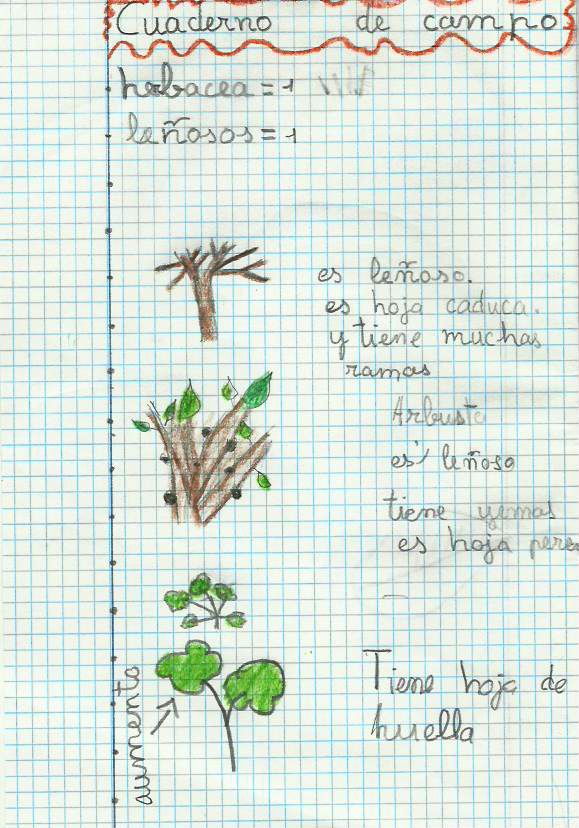 Cuaderno de campo
herbacea = 1
leñosos = 1
es leñoso.
es hoja caduca.
y tiene muchas
ramas
Arbusto
es leñoso
tiene yemas
es hoja peren
Tiene hoja de
huella
aumento